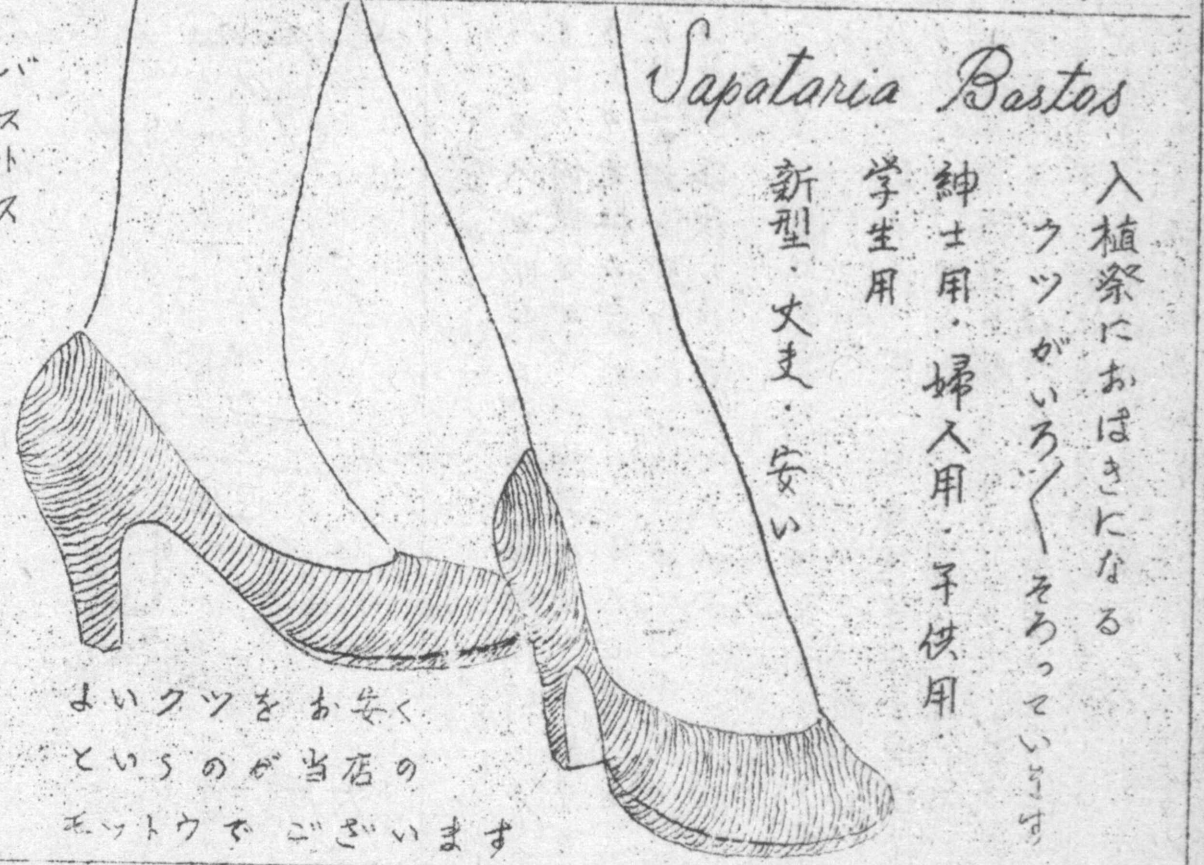 Sapataria Bastos
入植祭におはきになる
クツがいろ〱そろっています
紳士用・婦人用・子供用
学生用
新型・丈夫・安い
よいクツをお安く
というのが当店の
モットウでございます
バストス